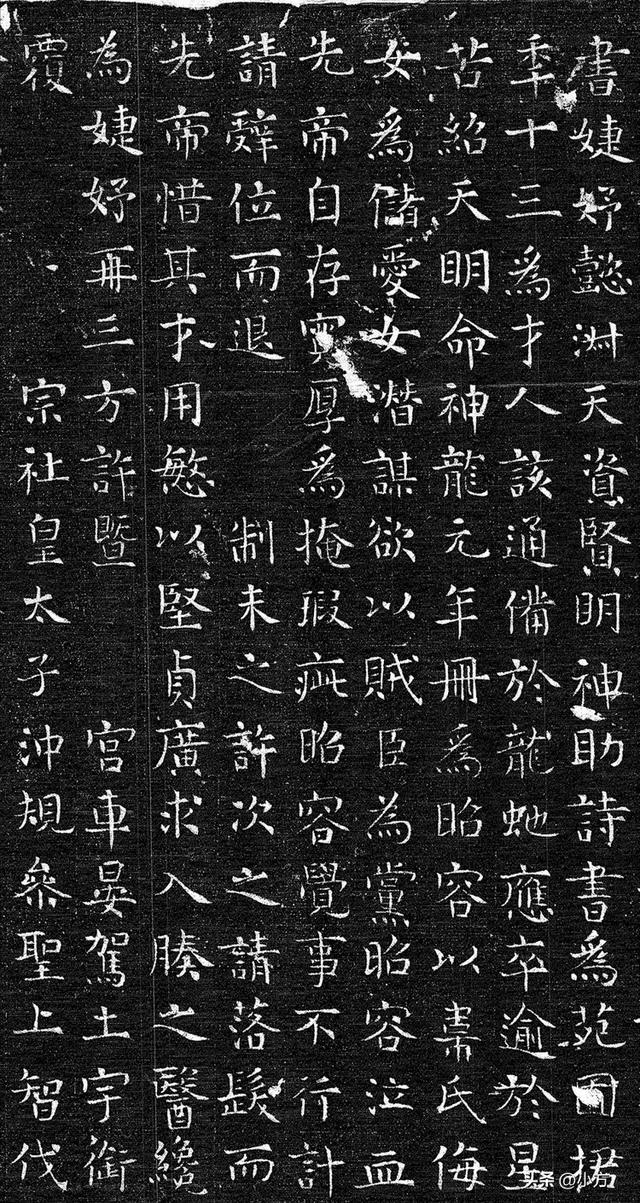 書婕妤懿淑天資賢明神助詩書爲苑囿捃
秊十三爲才人該通備於龍虵應卒逾於星
苦紹天明命神龍元年冊爲昭容以韋氏侮
女爲儲愛女潛謀欲以賊臣為黨昭容泣血
先帝自存寬厚爲掩瑕疵昭容覺事不行計
請辭位而退 制未之許次之請落髮而
先帝惜其才用慜以堅貞廣求入腠之醫纔
為婕妤再三方許暨 宮車晏駕土宇銜
覆 宗社皇太子沖規參聖上智伐
头条